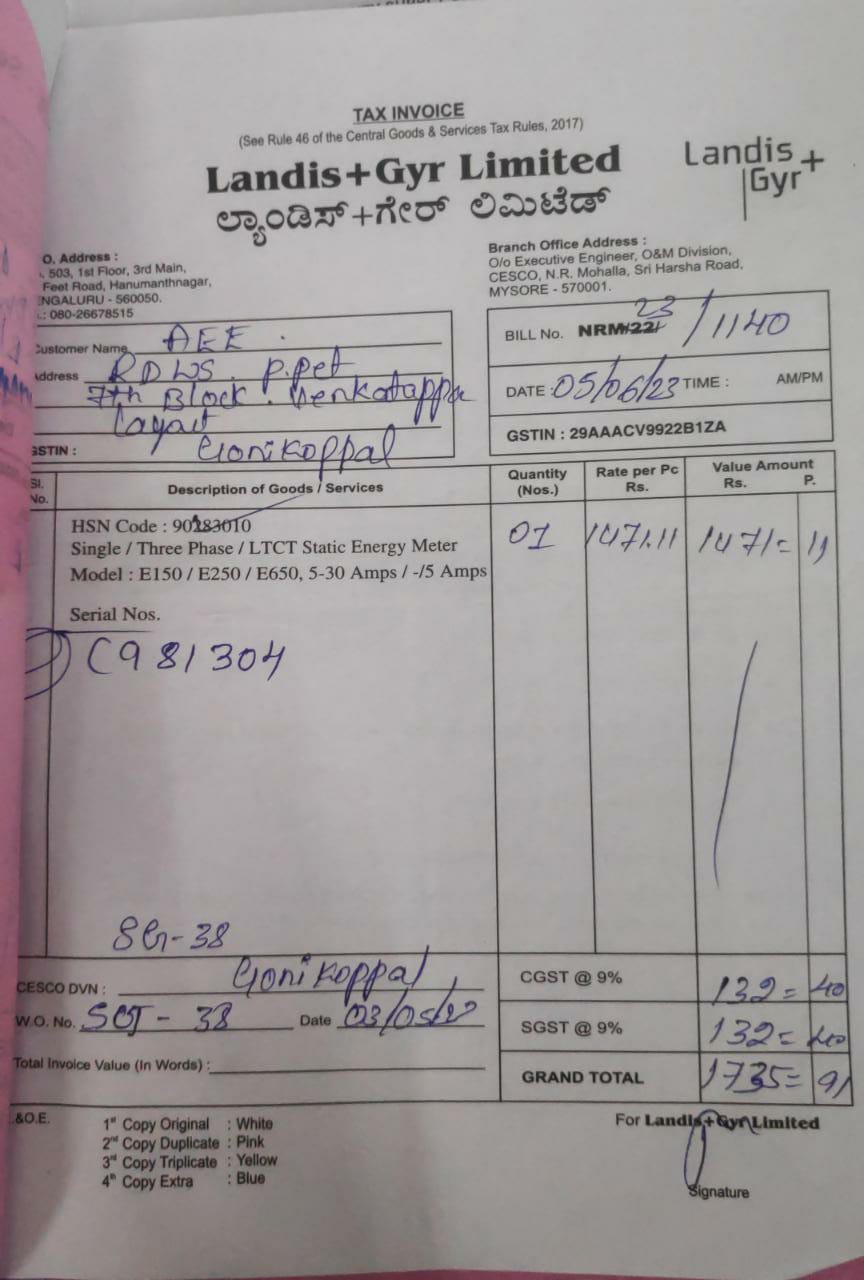 TAX INVOICE
(See Rule 46 of the Central Goods & Services Tax Rules, 2017)
Landis+Gyr Limited
ಲ್ಯಾಂಡಿಸ್+ಗೇರ್ ಲಿಮಿಟೆಡ್
Landis
Gyr+
O. Address :
503, 1st Floor, 3rd Main,
Feet Road, Hanumanthnagar,
ENGALURU - 560050.
: 080-26678515
Branch Office Address :
O/o Executive Engineer, O&M Division,
CESCO, N.R. Mohalla, Sri Harsha Road,
MYSORE - 570001.
Customer Name AEE .
Address RDWS . P.pet
7th Block . Venkatappa
Layout
GSTIN : Gonikoppal
BILL No. NRM/22/ 23 / 1140
DATE : 05/06/23 TIME : AM/PM
GSTIN : 29AAACV9922B1ZA
Sl. No. Description of Goods / Services Quantity (Nos.) Rate per Pc Rs. Value Amount Rs. P.
HSN Code : 90283010
Single / Three Phase / LTCT Static Energy Meter 01 1471.11 1471= 11
Model : E150 / E250 / E650, 5-30 Amps / -/5 Amps
Serial Nos.
C981304
CESCO DVN : Gonikoppal
W.O. No. - 38 Date 03/05/
Total Invoice Value (In Words) :
CGST @ 9% 132= 40
SGST @ 9% 132= 40
GRAND TOTAL 1735= 91
.&O.E.
1st Copy Original : White
2nd Copy Duplicate : Pink
3rd Copy Triplicate : Yellow
4th Copy Extra : Blue
For Landis+Gyr Limited
Signature